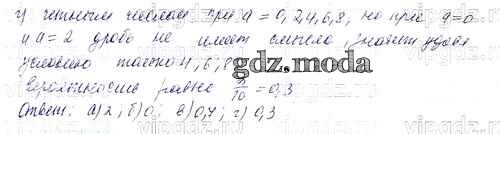 г) четным числам при a = 0, 2, 4, 6, 8, но при a=0
и a = 2 дробь не имеет смысла, значит удов.
условию только 4, 6, 8
Вероятность равна 3/10 = 0,3
Ответ: а) 2; б) 0; в) 0,7; г) 0,3
gdz.moda
vipgdz.ru